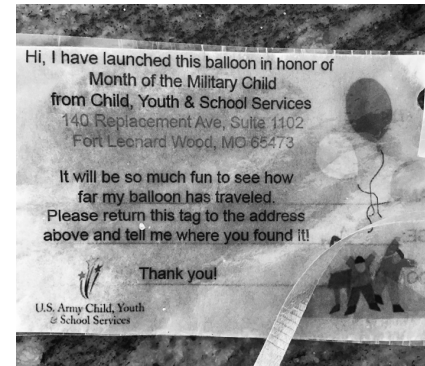 Hi, I have launched this balloon in honor of
Month of the Military Child
from Child, Youth & School Services
140 Replacement Ave, Suite 1102
Fort Leonard Wood, MO 65473
It will be so much fun to see how
far my balloon has traveled.
Please return this tag to the address
above and tell me where you found it!
Thank you!
U.S. Army Child, Youth
& School Services